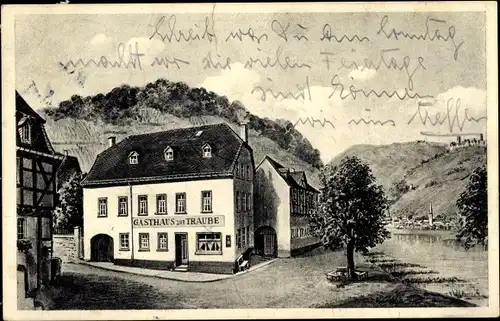 Schreib was Du Am Sonntag
machst wo die vielen Feiertage
sind können
wir uns treffen
GASTHAUS ZUR TRAUBE